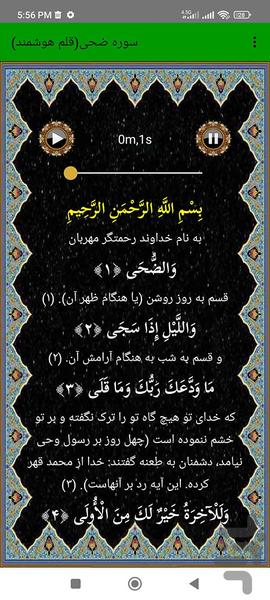 5:56 PM
سوره ضحی(قلم هوشمند)
0m,1s
بِسْمِ اللَّهِ الرَّحْمَنِ الرَّحِيمِ
به نام خداوند رحمتگر مهربان
وَالضُّحَى ﴿۱﴾
قسم به روز روشن (یا هنگام ظهر آن). (۱)
وَاللَّيْلِ إِذَا سَجَى ﴿۲﴾
و قسم به شب به هنگام آرامش آن. (۲)
مَا وَدَّعَكَ رَبُّكَ وَمَا قَلَى ﴿۳﴾
که خدای تو هیچ گاه تو را ترک نگفته و بر تو
خشم ننموده است (چهل روز بر رسول وحی
نیامد، دشمنان به طعنه گفتند: خدا از محمد قهر
کرده. این آیه رد بر آنهاست). (۳)
وَلَلْآخِرَةُ خَيْرٌ لَكَ مِنَ الْأُولَى ﴿۴﴾